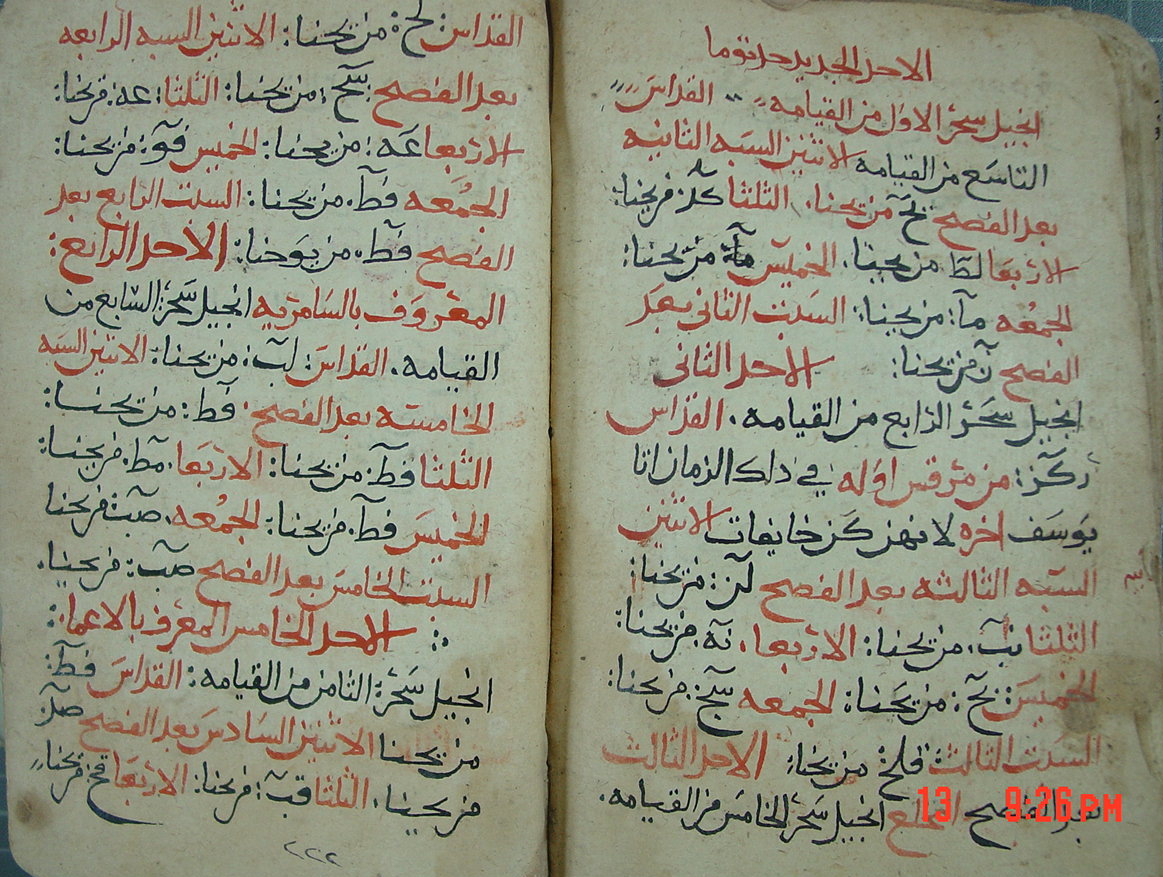 الاحد الجديد حد توما
انجيل سحر الاول من القيامه القداس
التاسع من القيامه الاثنين السبه الثانيه
بعد الفصح نح من يحنا. الثلثا كد من يحنا:
الاربعا لط من يحينا. الخميس مه من يحنا:
الجمعه ما: من يحينا: السبت الثاني بعد
الفصح ن من يحنا: الاحد الثاني
انجيل سحر الرابع من القيامه. القداس
من مرقس اوله في دلك الزمان اتا
يوسف اخره لانهن كن خايفات الاثنين
السبه الثالثه بعد الفصح لن: من يحنا:
الثلثا نب. من يحنا: الاربعا. نه. من يحنا:
الخميس: نح: من يحنا: الجمعه سح: من يحنا:
السبت الثالث من يحنا: الاحد الثالث
بعد الفصح المخلع انجيل سحر الخامس من القيامه.
13 9:26 PM
القداس: لح: من يحنا: الاثنين السبه الرابعه
بعد الفصح: سح: من يحنا: الثلثا: عه: من يحنا:
الاربعا عه: من يحنا: الخميس فو: من يحنا:
الجمعه فط. من يحنا: السبت الرابع بعد
الفصح فط. من يوحنا: الاحد الرابع:
المعروف بالسامريه انجيل سحر: السابع من
القيامه. القداس: لب: من يحنا: الاثنين السبه
الخامسه بعد الفصح. فط: من يحنا:
الثلثا فط: من يحنا: الاربعا. مط. من يحنا:
الخميس فط. من يحنا: الجمعه. صب: من يحنا
السبت الخامس بعد الفصح صب: من يحنا.
الاحد الخامس المعرف بالاعما:
انجيل سحر: الثامن من القيامه: القداس فط:
من يحنا الاثنين السادس بعد الفصح صد:
من يحينا. الثلثا قب: من يحنا: الاربعا قح من يحنا
٢٢٢